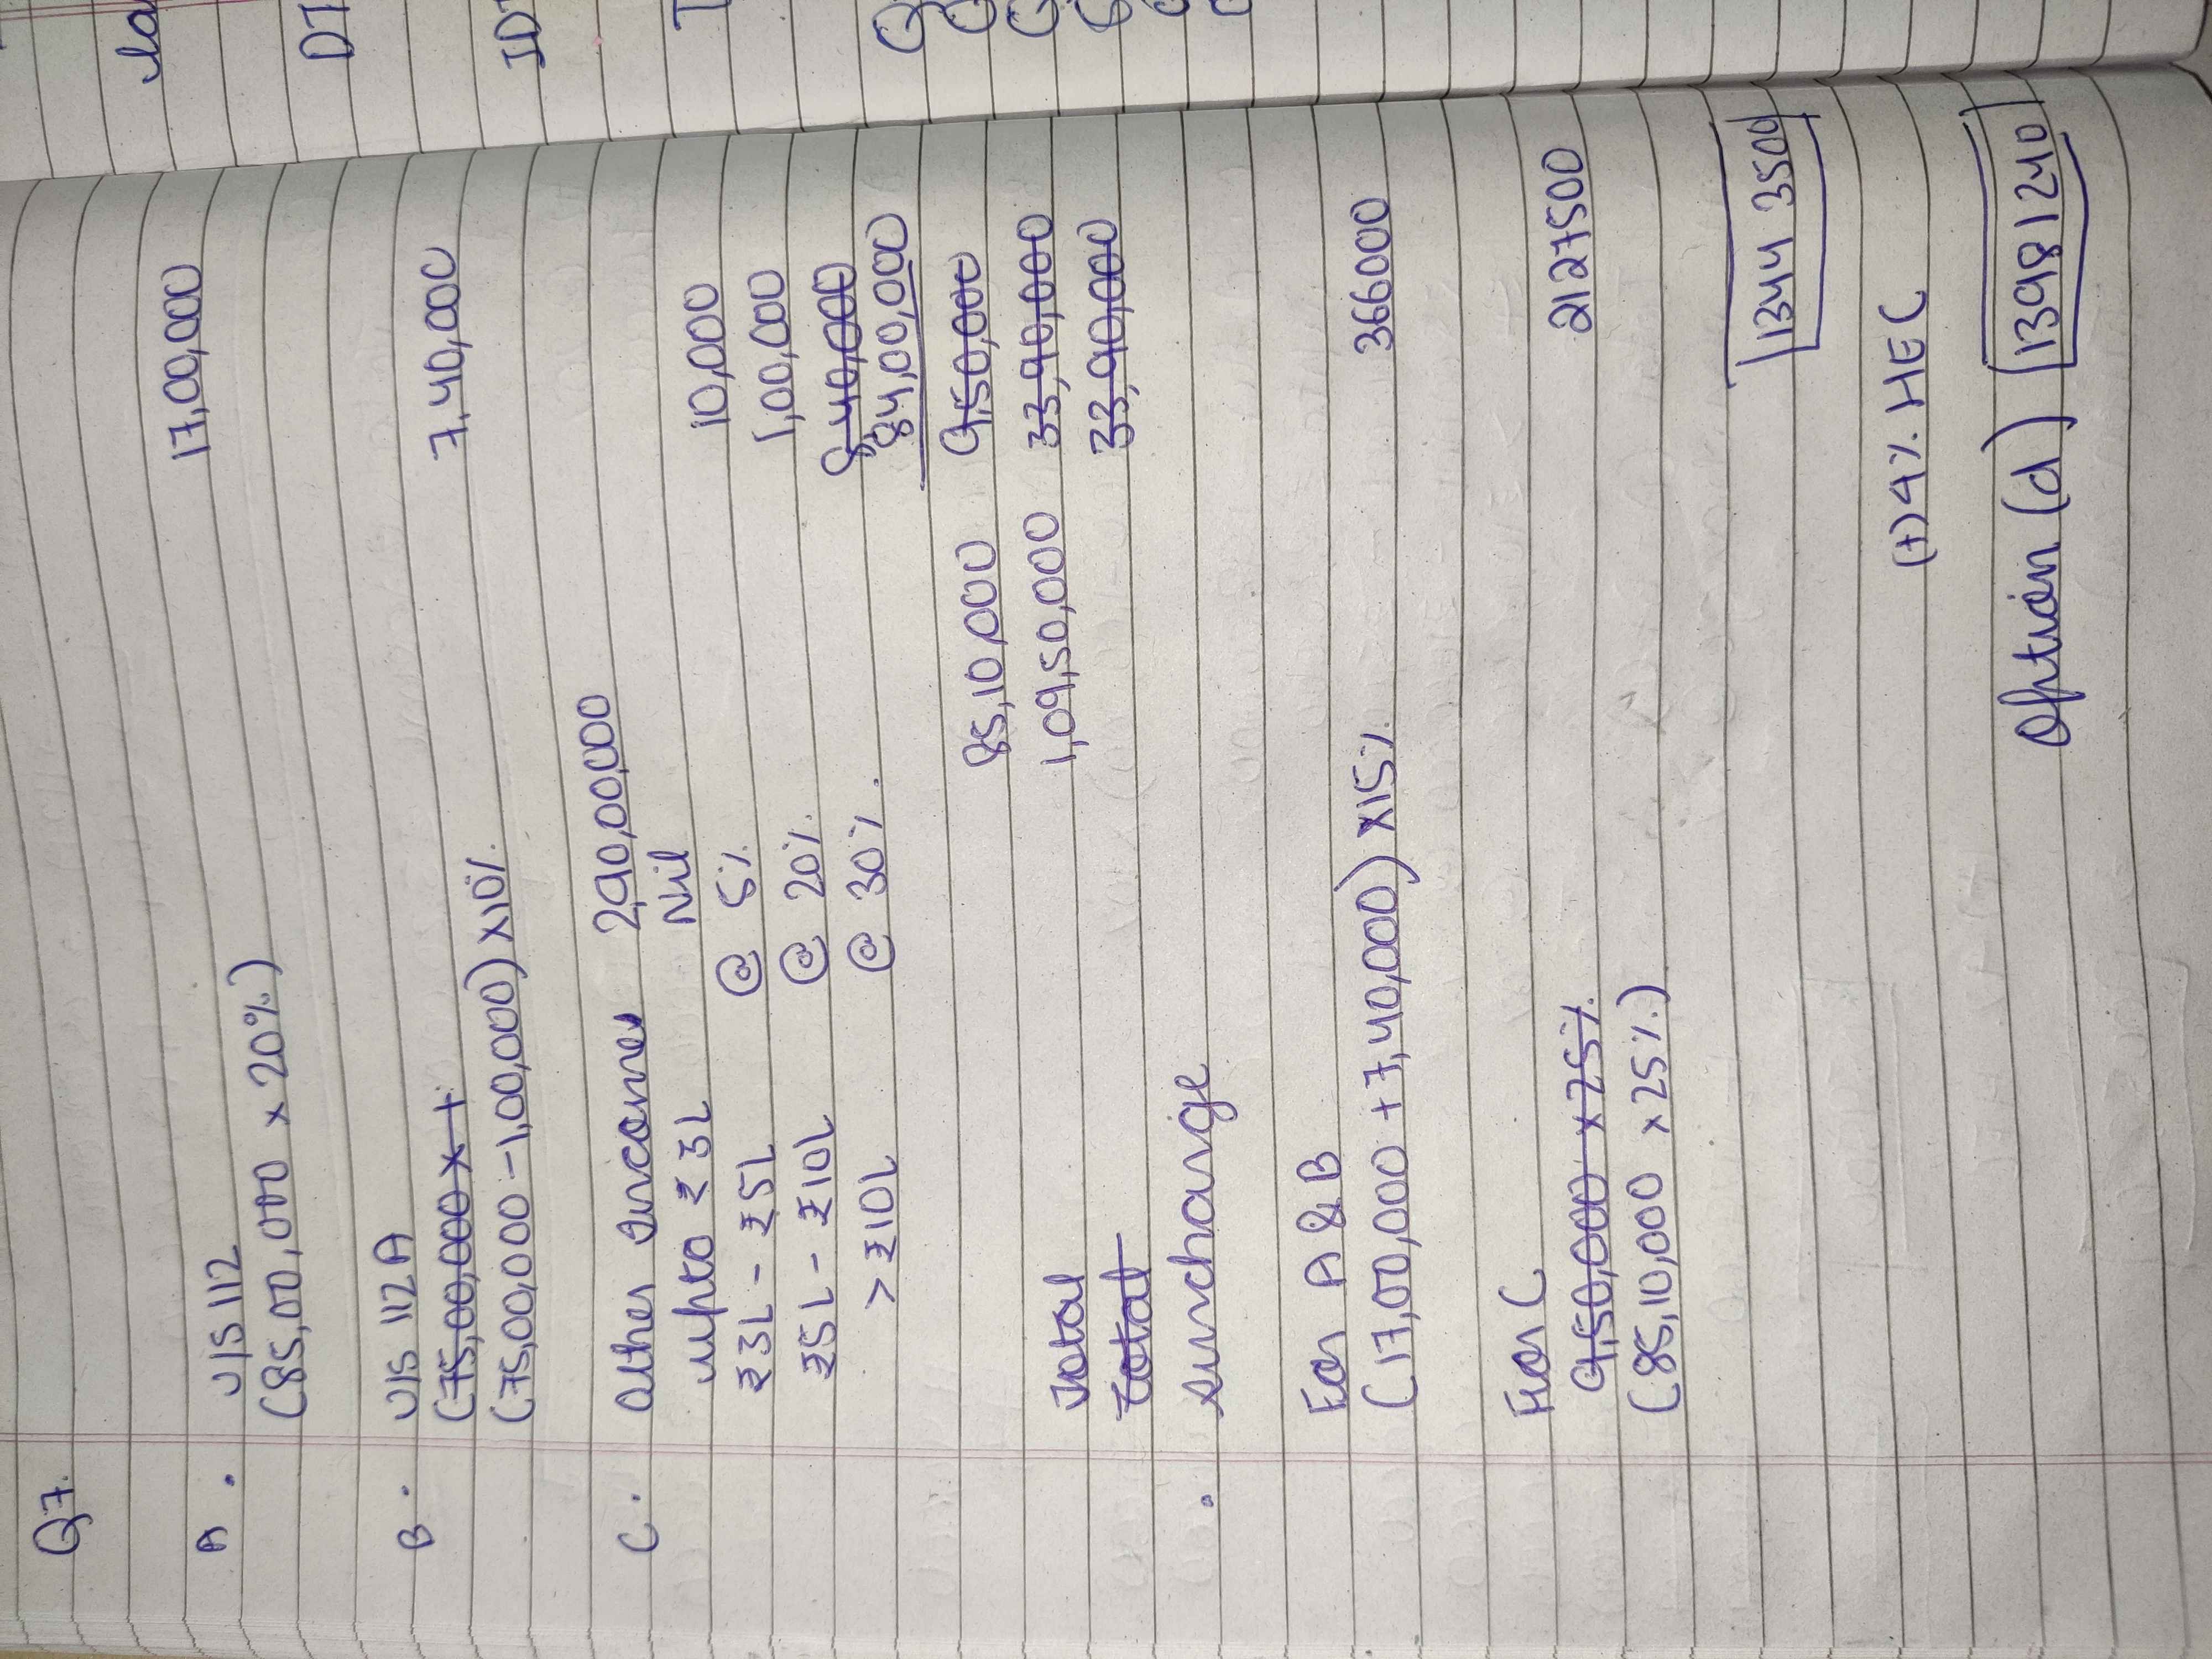 Q7.
A . U/S 112
(85,00,000 x 20%) 17,00,000
B . U/S 112A
(75,00,000 x + 7,40,000
(75,00,000 - 1,00,000) x10%.
C . Other incomes 2,90,00,000
upto ₹ 3L Nil
₹3L - ₹5L @ 5% 10,000
₹5L - ₹10L @ 20%. 1,00,000
8,40,000
> ₹10L @ 30%. 84,00,000
85,10,000 9,50,000
Total 1,09,50,000 33,90,000
Total 33,90,000
. Surcharge
For A & B
(17,00,000 + 7,40,000) x15%. 366000
For C 2127500
9,50,000 x 25%.
(85,10,000 x 25%.)
1344 3500
(+) 4% HEC
Option (d) 13981240
DT
IDT